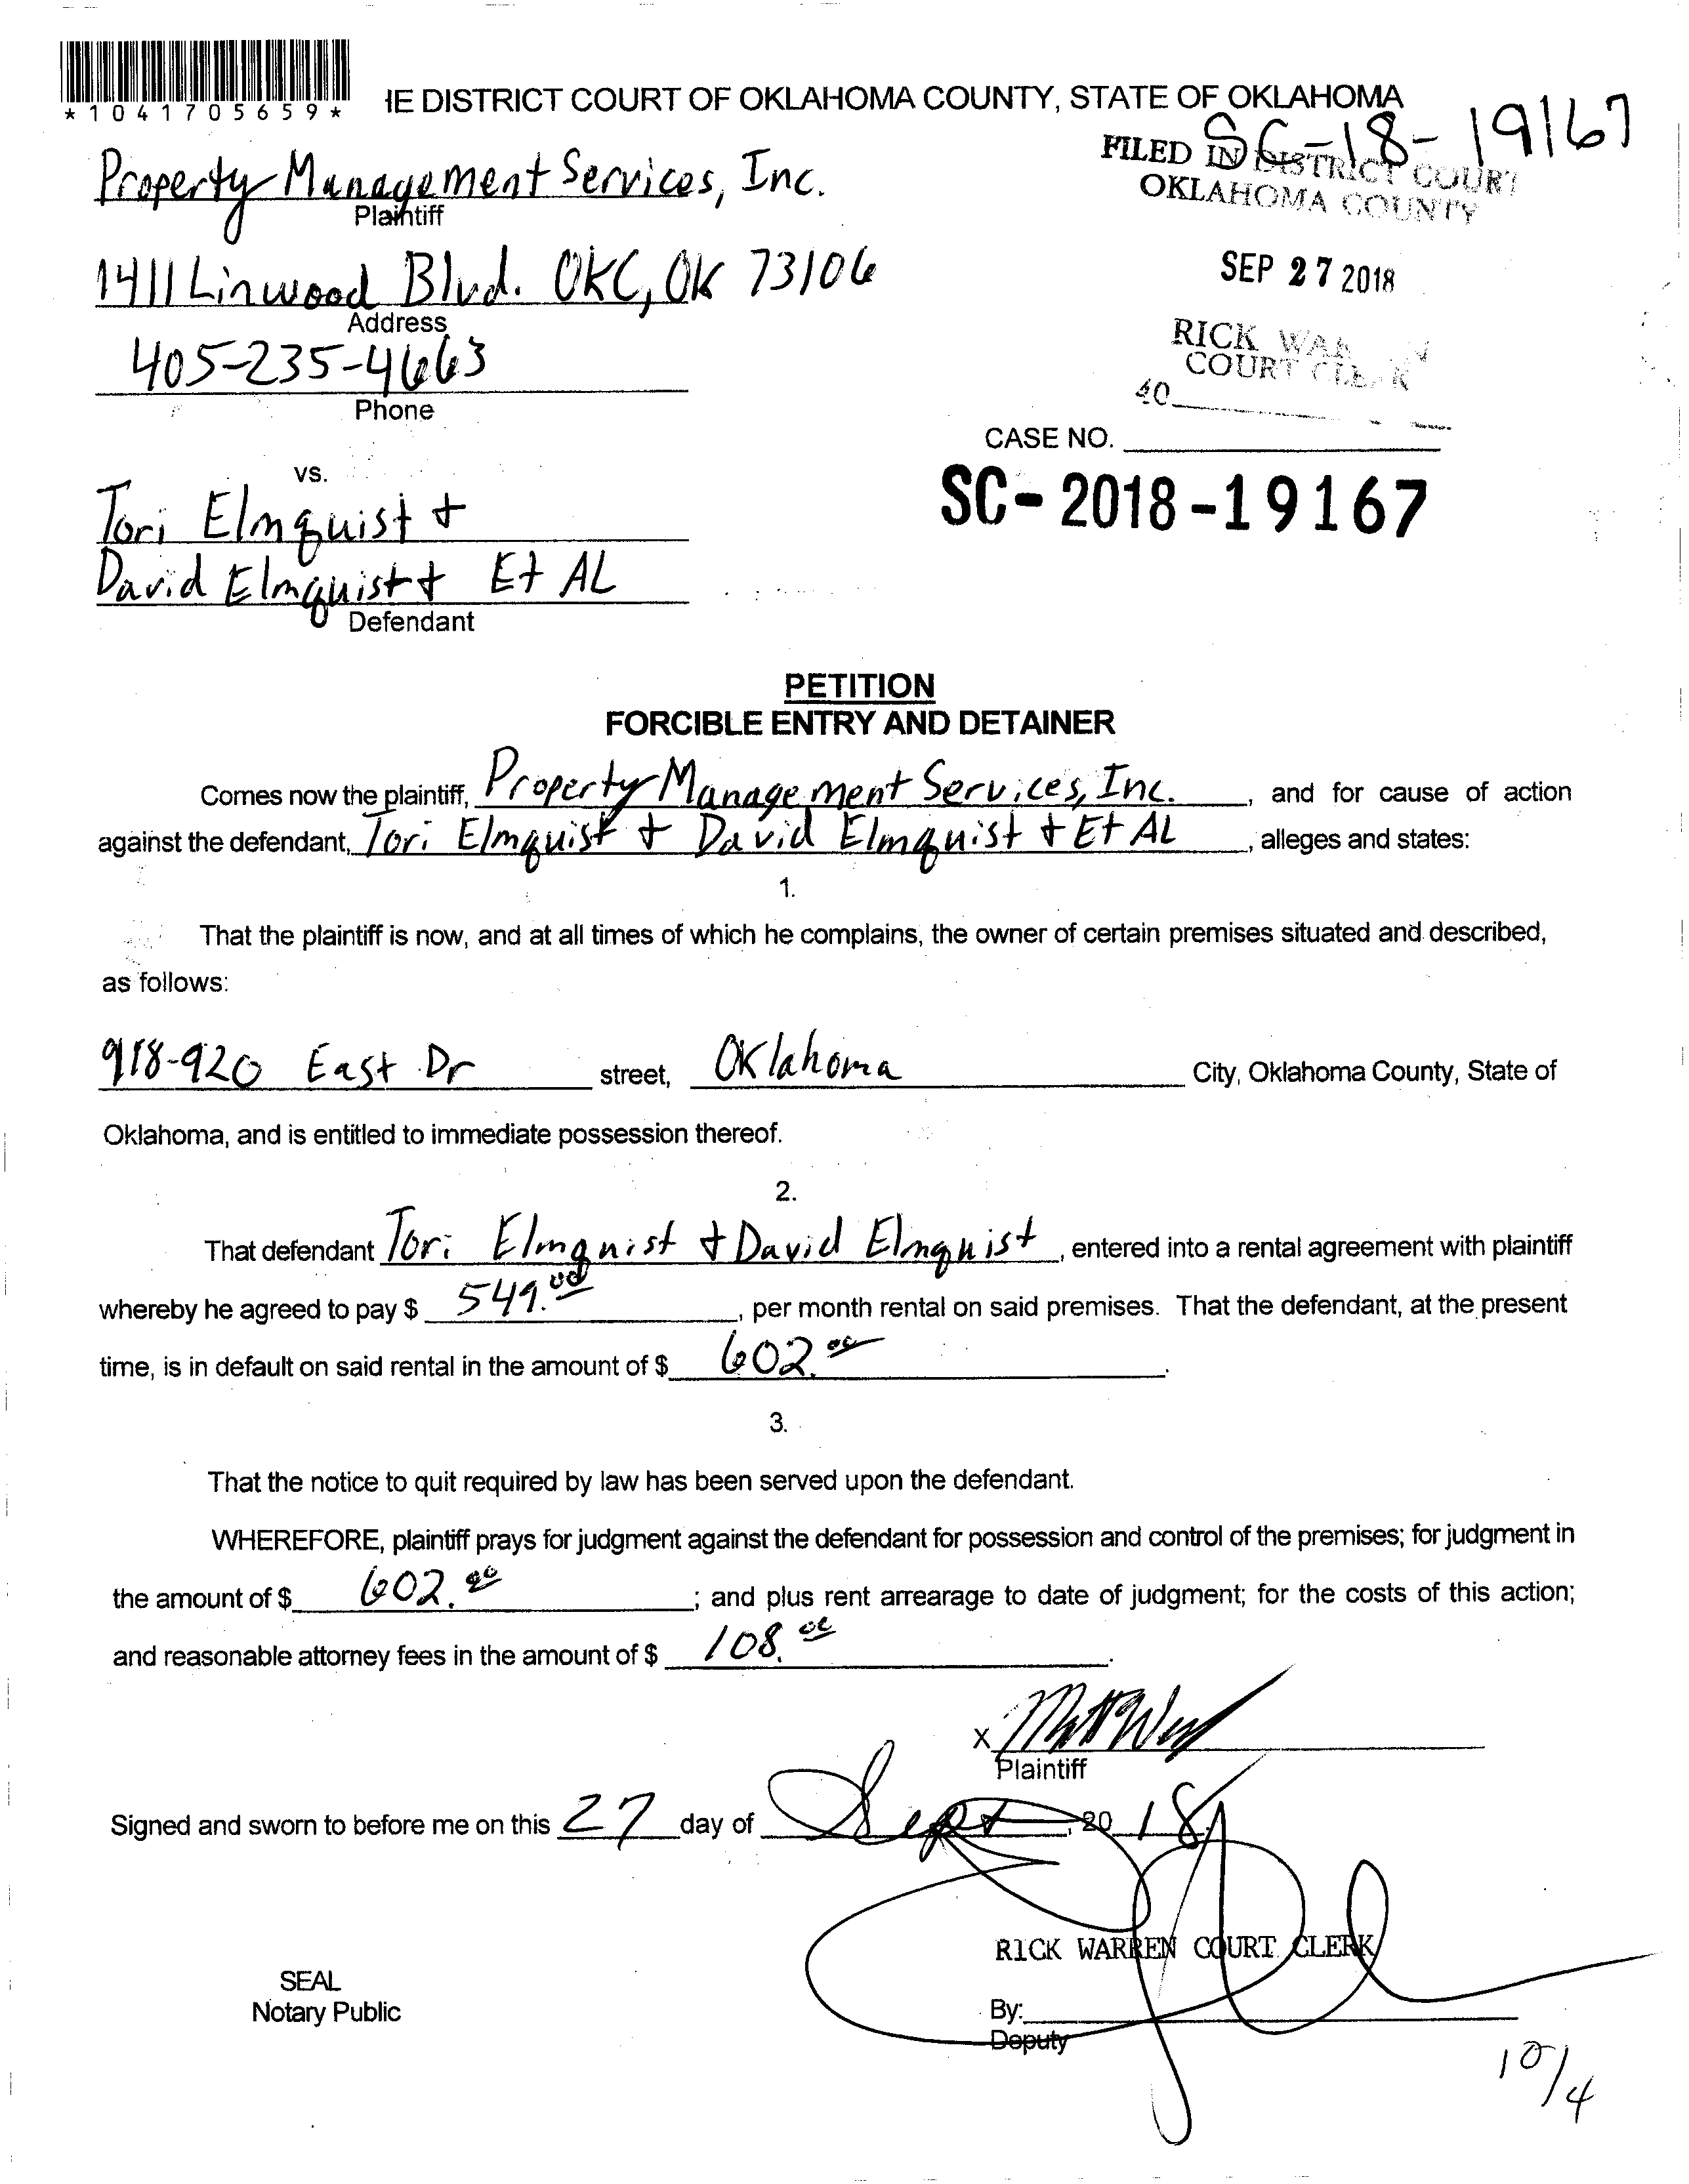 *1041705659*
IE DISTRICT COURT OF OKLAHOMA COUNTY, STATE OF OKLAHOMA
SC-18-19167
FILED IN DISTRICT COURT
OKLAHOMA COUNTY
Property Management Services, Inc.
Plaintiff
1411 Linwood Blvd. OKC, OK 73106
Address
SEP 27 2018
405-235-4663
Phone
RICK
COURT CLERK
40
CASE NO.
SC-2018-19167
vs.
Tori Elmquist +
David Elmquist + Et AL
Defendant
PETITION
FORCIBLE ENTRY AND DETAINER
Comes now the plaintiff, Property Management Services, Inc. , and for cause of action
against the defendant, Tori Elmquist + David Elmquist + Et AL , alleges and states:
1.
That the plaintiff is now, and at all times of which he complains, the owner of certain premises situated and described,
as follows:
918-920 East Dr street, Oklahoma City, Oklahoma County, State of
Oklahoma, and is entitled to immediate possession thereof.
2.
That defendant Tori Elmquist + David Elmquist , entered into a rental agreement with plaintiff
whereby he agreed to pay $ 549.00 , per month rental on said premises. That the defendant, at the present
time, is in default on said rental in the amount of $ 602.00 .
3.
That the notice to quit required by law has been served upon the defendant.
WHEREFORE, plaintiff prays for judgment against the defendant for possession and control of the premises; for judgment in
the amount of $ 602.00 ; and plus rent arrearage to date of judgment; for the costs of this action;
and reasonable attorney fees in the amount of $ 108.00 .
X
Plaintiff
Signed and sworn to before me on this 27 day of Sept , 20 18.
RICK WARREN COURT CLERK
SEAL
Notary Public
By:
Deputy
10/4